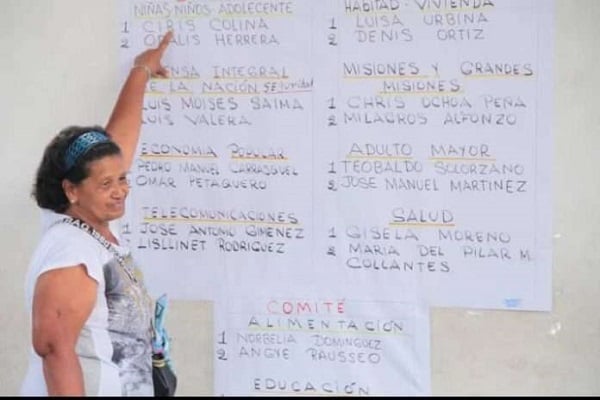 NIÑAS NIÑOS-ADOLECENTE
1 CIRIS COLINA
2 ODALIS HERRERA
ENSA INTEGRAL
DE LA NACIÓN seguridad
LUIS MOISES SAIMA
LUIS VALERA
ECONOMIA POPULAR
PEDRO MANUEL CARRASQUEL
OMAR PETAQUERO
TELECOMUNICACIONES
1 JOSE ANTONIO GIMENEZ
2 LISLLINET RODRIGUEZ
HABITAD-VIVIENDA
1 LUISA URBINA
2 DENIS ORTIZ
MISIONES Y GRANDES
MISIONES
1 CHRIS OCHOA PEÑA
2 MILAGROS ALFONZO
ADULTO MAYOR
1 TEOBALDO SOLORZANO
2 JOSE MANUEL MARTINEZ
SALUD
1 GISELA MORENO
2 MARIA DEL PILAR M.
COLLANTES
COMITÉ
ALIMENTACIÓN
1 NORBELIA DOMINGUEZ
2 ANGYE RAUSSEO
EDUCACIÓN